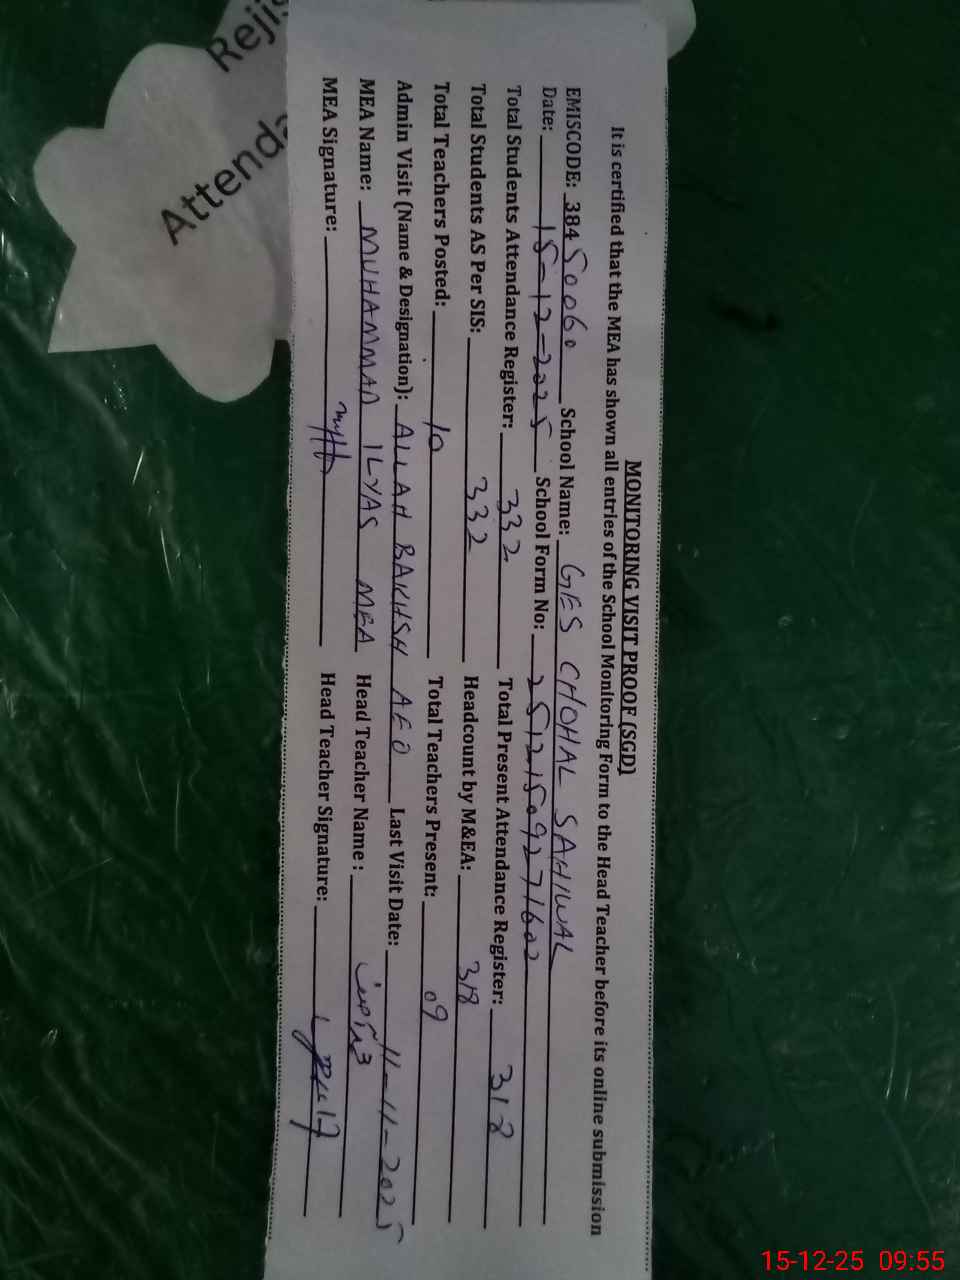 MONITORING VISIT PROOF (SGD)
It is certified that the MEA has shown all entries of the School Monitoring Form to the Head Teacher before its online submission
EMISCODE: 38450060 School Name: GES CHOHAL SAHIWAL
Date: 15-12-2025 School Form No: 25121509271602
Total Students Attendance Register: 332 Total Present Attendance Register: 318
Total Students AS Per SIS: 332 Headcount by M&EA: 318
Total Teachers Posted: 10 Total Teachers Present: 09
Admin Visit (Name & Designation): ALLAH BAKHSH AEO Last Visit Date: 11-11-2025
MEA Name: MUHAMMAD ILYAS MEA Head Teacher Name :
MEA Signature: Head Teacher Signature:
Attend
15-12-25 09:55